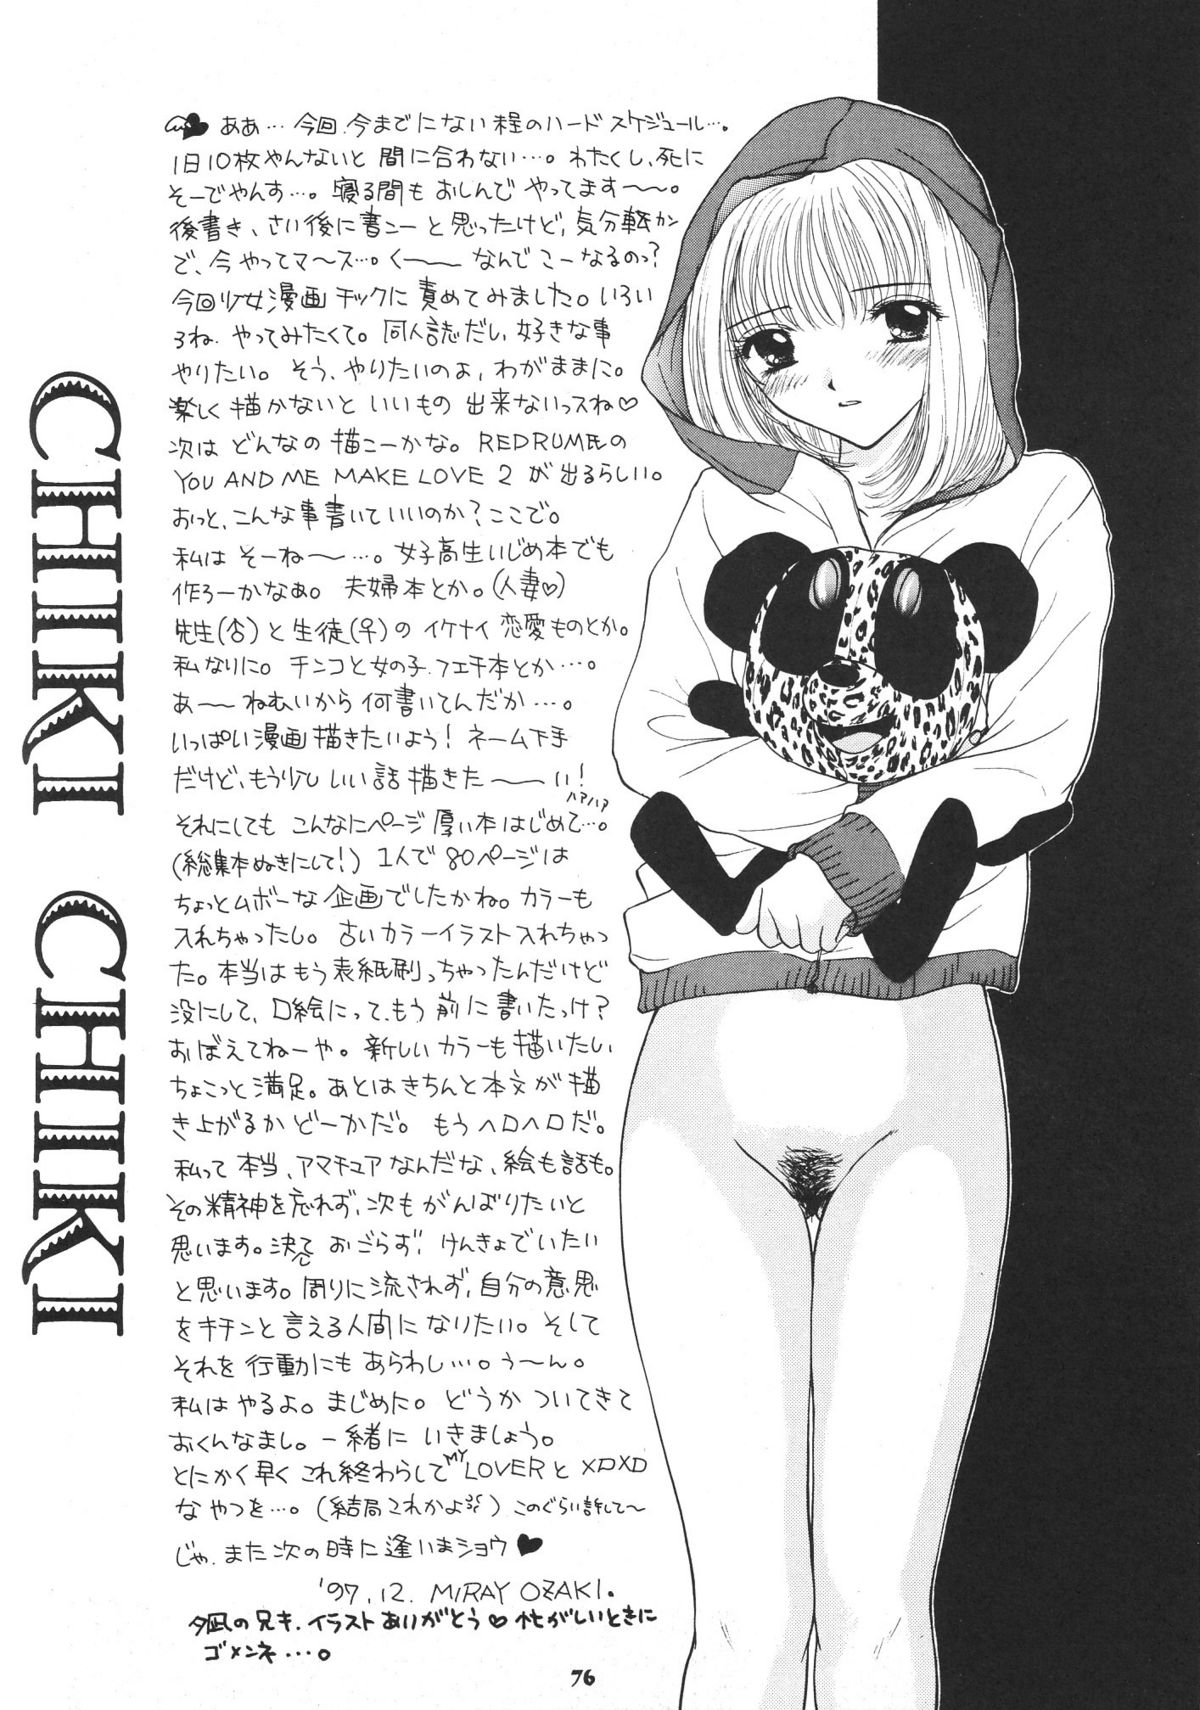 CHIKI CHIKI
ああ…今回、今までにない程のハードスケジュール…。
1日10枚やんないと間に合わない…。わたくし、死に
そーでやんす…。寝る間もおしんでやってます〜〜。
後書き、さい後に書こーと思ったけど、気分転かン
で、今やってマ〜ス…。く〜〜なんでこーなるのっ?
今回少女漫画チックに責めてみました。いろい
ろね、やってみたくて。同人誌だし、好きな事
やりたい。そう、やりたいのよ、わがままに。
楽しく描かないといいもの出来ないっスね♡
次はどんなの描こーかな。REDRUM氏の
YOU AND ME MAKE LOVE 2が出るらしい。
おっと、こんな事書いていいのか?ここで。
私はそーね〜…。女子高生いじめ本でも
作ろーかなぁ。夫婦本とか。(人妻♡)
先生(♂)と生徒(♀)のイケナイ恋愛ものとか。
私なりに。チンコと女の子、フェチ本とか…。
あ〜〜ねむいから何書いてんだか…。
いっぱい漫画描きたいよう!ネーム下手
だけど、もう少しいい話描きた〜〜い!
ハァハァ
それにしてもこんなにページ厚い本はじめて…。
(総集本ぬきにして!)1人で80ページは
ちょっとムボーな企画でしたかね。カラーも
入れちゃったし。古いカラーイラスト入れちゃっ
た。本当はもう表紙刷っちゃったんだけど
没にして、口絵にって、もう前に書いたっけ?
おぼえてねーや。新しいカラーも描いたし
ちょこっと満足。あとはきちんと本文が描
き上がるかどーかだ。もうヘロヘロだ。
私って本当、アマチュアなんだな、絵も話も。
その精神を忘れず、次もがんばりたいと
思います。決しておごらず、けんきょでいたい
と思います。周りに流されず、自分の意思
をキチンと言える人間になりたい。そして
それを行動にもあらわし…。う〜ん。
私はやるよ。まじめに。どうかついてきて
おくんなまし。一緒にいきましょう。
とにかく早くこれ終わらしてMY LOVERとXDXD
なやつを…。(結局これかよ)このぐらい許して〜
じゃ、また次の時に逢いまショウ♥
'97.12. MIRAY OZAKI.
夕凪の兄キ、イラストありがとう♡忙がしいときに
ゴメンネ…。
76